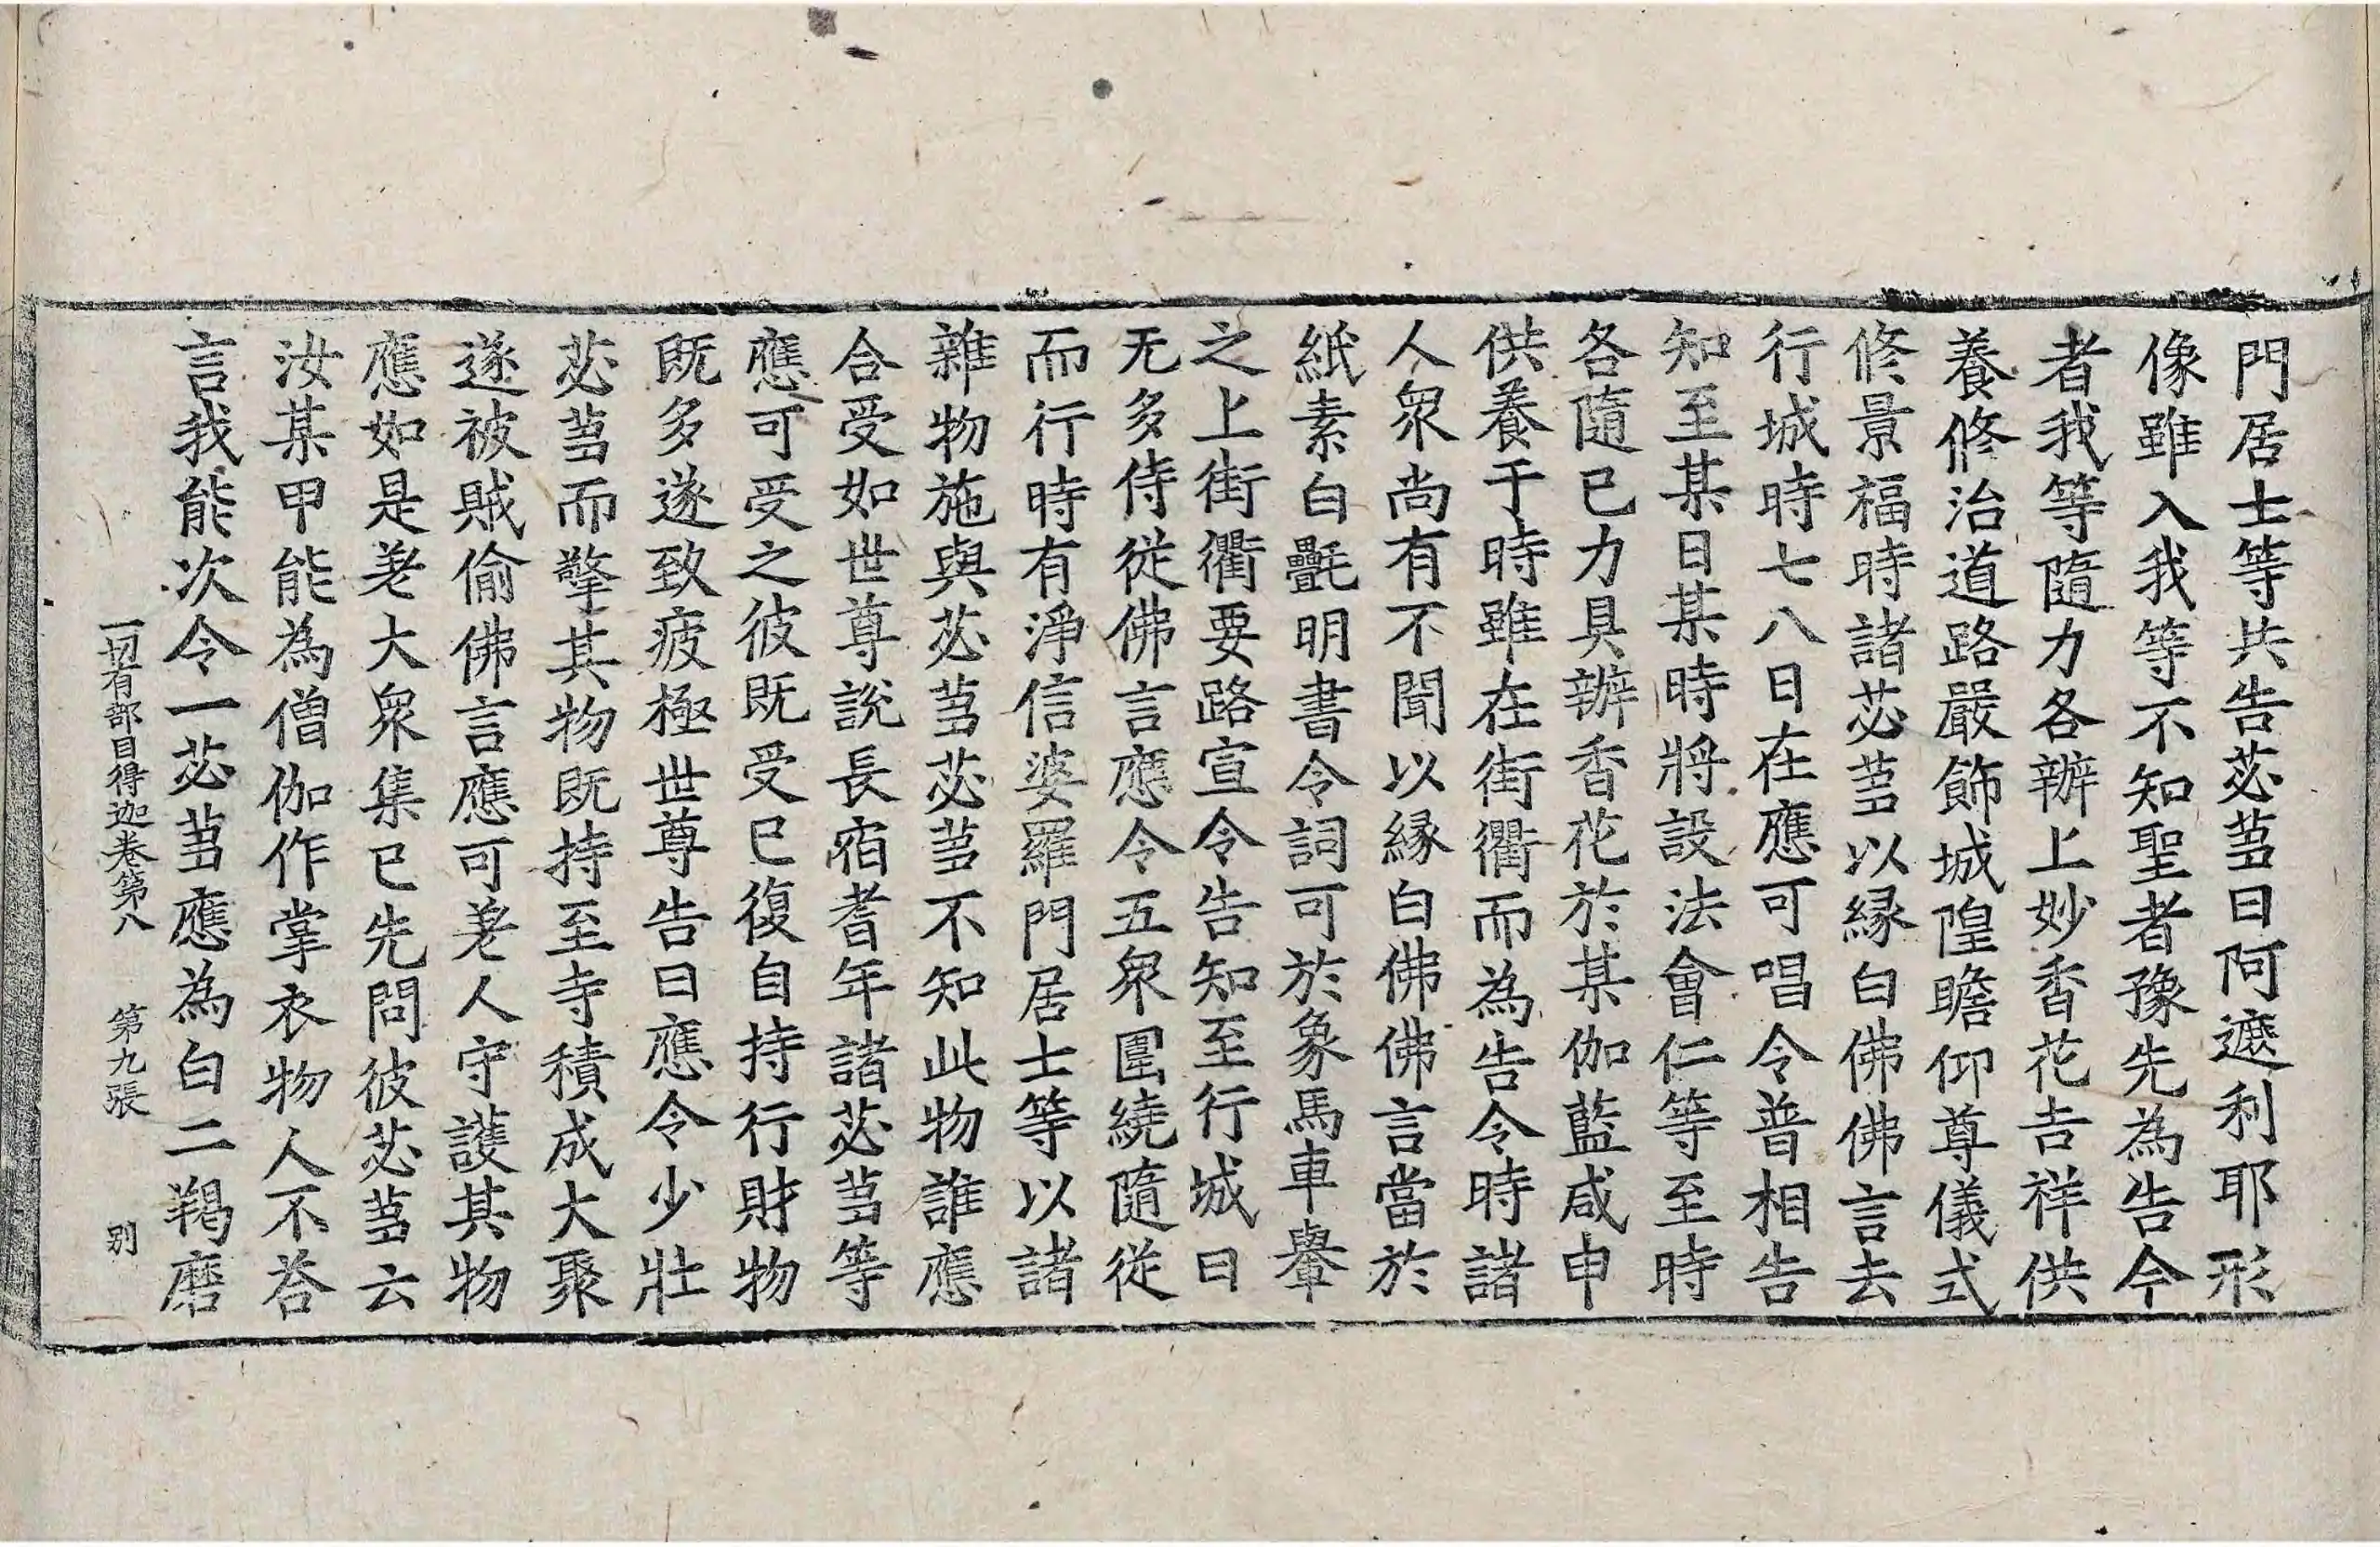 門居士等共告苾蒭曰阿遮利耶形
像雖入我等不知聖者豫先為告今
者我等隨力各辦上妙香花吉祥供
養修治道路嚴飾城隍瞻仰尊儀式
修景福時諸苾蒭以緣白佛佛言去
行城時七八日在應可唱令普相告
知至某日某時將設法會仁等至時
各隨已力具辦香花於某伽藍咸申
供養于時雖在街衢而為告令時諸
人衆尚有不聞以緣白佛佛言當於
紙素白氎明書令詞可於象馬車轝
之上街衢要路宣令告知至行城日
无多侍從佛言應令五衆圍繞隨從
而行時有淨信婆羅門居士等以諸
雜物施與苾蒭苾蒭不知此物誰應
合受如世尊說長宿耆年諸苾蒭等
應可受之彼既受已復自持行財物
既多遂致疲極世尊告曰應令少壯
苾蒭而擎其物既持至寺積成大聚
遂被賊偷佛言應可差人守護其物
應如是差大衆集已先問彼苾蒭云
汝某甲能為僧伽作掌衣物人不荅
言我能次令一苾蒭應為白二羯磨
一切有部目得迦卷第八　第九張　别